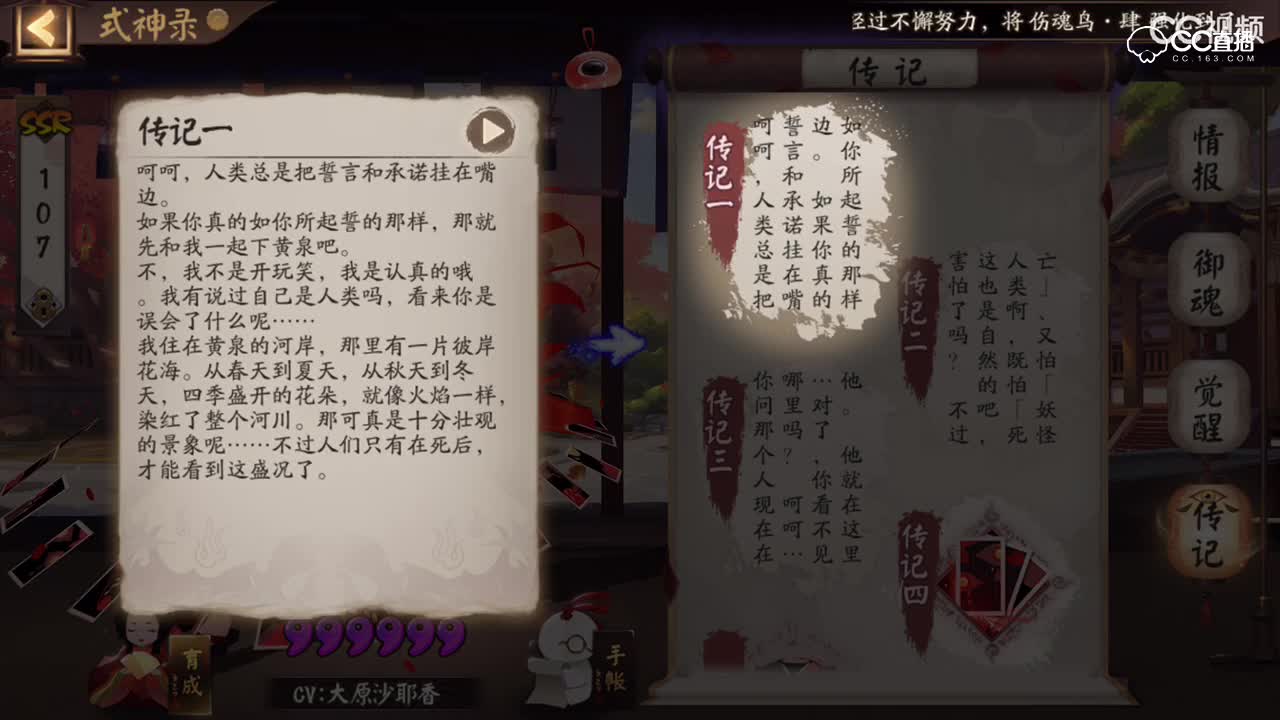 式神录
经过不懈努力，将 伤魂鸟·肆 强化到了
CC视频
CC直播
CC.163.COM
SSR
107
传记一
呵呵，人类总是把誓言和承诺挂在嘴
边。
如果你真的如你所起誓的那样，那就
先和我一起下黄泉吧。
不，我不是开玩笑，我是认真的哦
。我有说过自己是人类吗，看来你是
误会了什么呢……
我住在黄泉的河岸，那里有一片彼岸
花海。从春天到夏天，从秋天到冬
天，四季盛开的花朵，就像火焰一样，
染红了整个河川。那可真是十分壮观
的景象呢……不过人们只有在死后，
才能看到这盛况了。
育成
999999
CV:大原沙耶香
手帐
传记
传记一
呵呵，人类总是把
誓言和承诺挂在嘴
边。 如果你真的
如你所起誓的那样
传记二
害怕了吗？ 不过
这也是自然的吧，
人类啊，既怕「死
亡」、又怕「妖怪
传记三
你问那个人现在在
哪里吗？ 呵呵…
…对了，你看不见
他。 他就在这里
传记四
情报
御魂
觉醒
传记